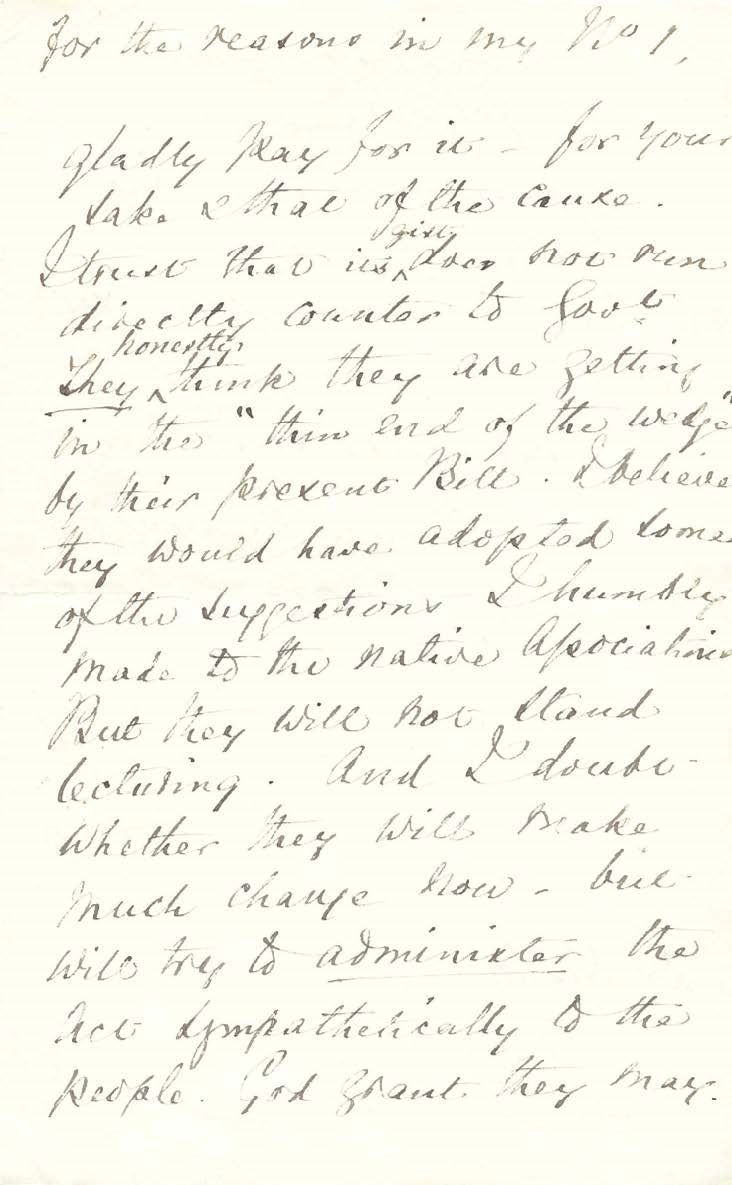 for the reasons in my No 1,
gladly pay for it - for your
sake & that of the cause.
I trust that its gist does not run
directly counter to Govt.
They honestly think they are getting
in the "thin end of the wedge"
by their present Bill. I believe
they would have adopted some
of the suggestions I humbly
made to the native Associations
But they will not stand
lecturing. And I doubt
whether they will make
much change now - but
will try to administer the
Act sympathetically to the
people. God grant they may.